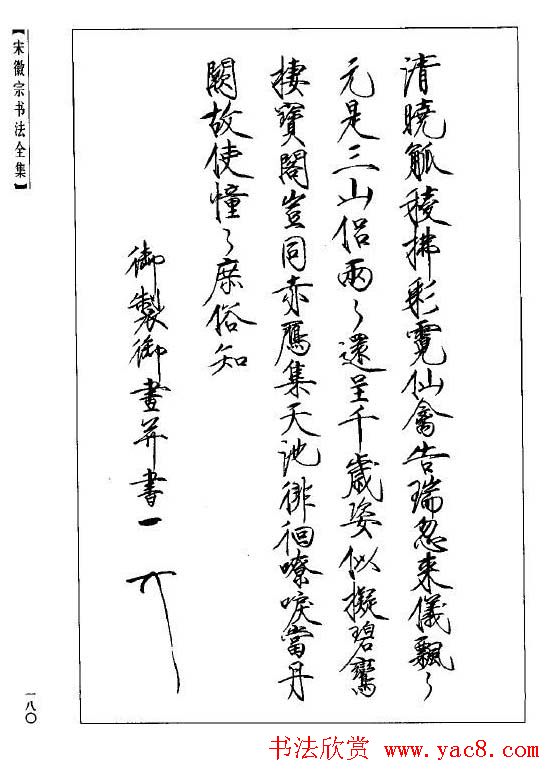 清曉觚稜拂彩霓仙禽告瑞忽來儀飄々
元是三山侶兩々還呈千歲姿似擬碧鸞
棲寶閣豈同赤鴈集天池徘徊嘹唳當丹
闕故使憧々庶俗知
御製御畫并書一
【宋徽宗书法全集】
一八〇
书法欣赏 www.yac8.com